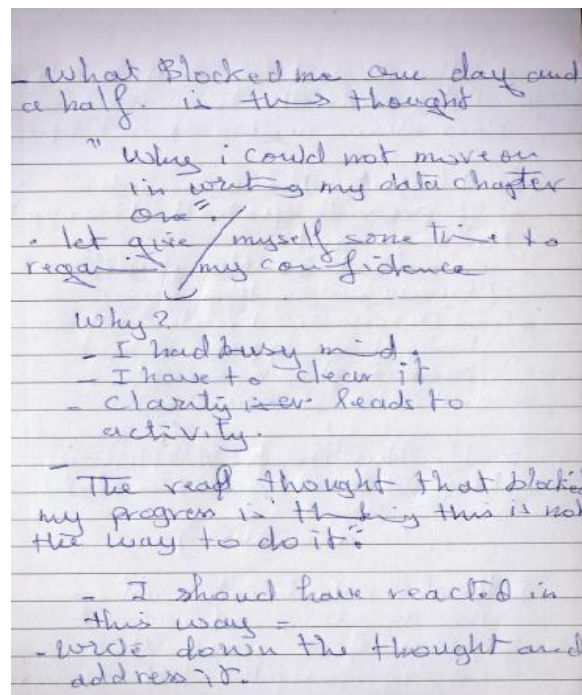 - What Blocked me one day and
a half. is this thought
" Why i could not move on
in writing my data chapter
One".
. let give myself some time to
regain my confidence
Why?
- I had busy mind.
- I have to clear it
- Clarity leads to
activity.
- The real thought that blocke
my progress is "thinking this is not
the way to do it".
- I shoud have reacted in
this way =
- wrote down the thought and
address it.